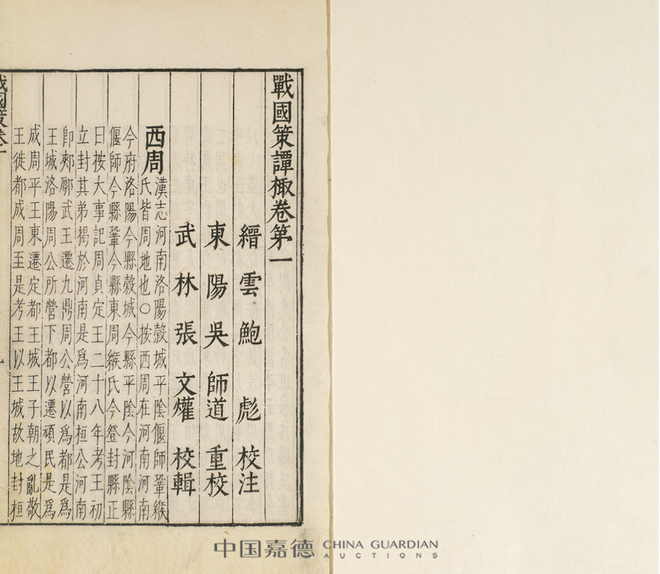 戰國策譚棷卷第一
縉雲鮑彪校注
東陽吳師道重校
武林張文爟校輯
西周漢志河南洛陽榖城平陰偃師鞏緱
氏皆周地也○按西周在河南河南
今府洛陽今縣榖城今縣平陰今河陰縣
偃師今縣鞏今縣東周緱氏今登封縣正
曰按大事記周貞定王二十八年考王初
立封其弟揭於河南是爲河南桓公河南
即郟鄏武王遷九鼎周公營以爲都是爲
王城洛陽周公所營下都以遷頑民是爲
成周平王東遷定都王城王子朝之亂敬
王徙都成周至是考王以王城故地封桓
中国嘉德 CHINA GUARDIAN
AUCTIONS